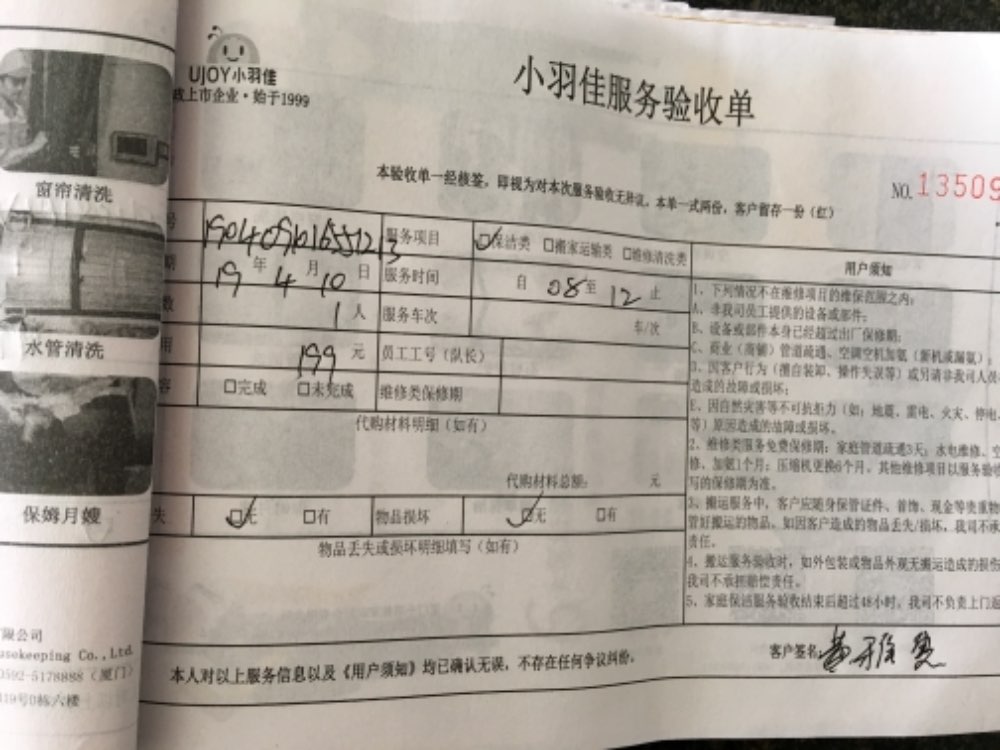 窗帘清洗
水管清洗
保姆月嫂
限公司
usekeeping Co.,Ltd.
0592-5178888（厦门）
119号D栋六楼
UJOY小羽佳
上市企业·始于1999
小羽佳服务验收单
本验收单一经核签，即视为对本次服务验收无异议，本单一式两份，客户留存一份（红）
NO.13509
号 服务项目 保洁类 □搬家运输类 □维修清洗类
期 19年4月10日 服务时间 自08至12止
数 1人 服务车次 车/次
用 199元 员工工号（队长）
容 □完成 □未完成 维修类保修期
代购材料明细（如有）
代购材料总额： 元
失 □无 □有 物品损坏 □无 □有
物品丢失或损坏明细填写（如有）
用户须知
1、下列情况不在维修项目的维保范围之内：
A、非我司员工提供的设备或部件；
B、设备或部件本身已经超过出厂保修期；
C、商业（商铺）管道疏通、空调空机加氨（新机或漏氨）；
D、因客户行为（擅自装卸、操作失误等）或另请非我司人员
造成的故障或损坏；
E、因自然灾害等不可抗拒力（如：地震、雷电、火灾、停电
等）原因造成的故障或损坏。
2、维修类服务免费保修期：家庭管道疏通3天；水电维修、空
修、加氨1个月；压缩机更换6个月，其他维修项目以服务验收
写的保修期为准。
3、搬运服务中，客户应随身保管证件、首饰、现金等贵重物
管好搬运的物品。如因客户造成的物品丢失/损坏，我司不承
责任。
4、搬运服务验收时，如外包装或物品外观无搬运造成的损伤
我司不承担赔偿责任。
5、家庭保洁服务验收结束后超过48小时，我司不负责上门返
本人对以上服务信息以及《用户须知》均已确认无误，不存在任何争议纠纷。
客户签名